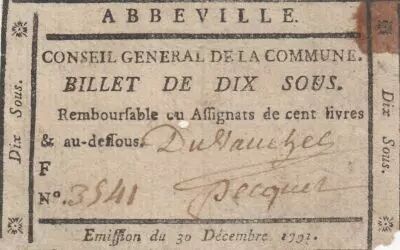 ABBEVILLE.
CONSEIL GENERAL DE LA COMMUNE.
BILLET DE DIX SOUS.
Remboursable en Assignats de cent livres
& au-dessous.
F
N°. 3541
Pecquet
Emission du 30 Décembre 1791.
Dix Sous.
Dix Sous.